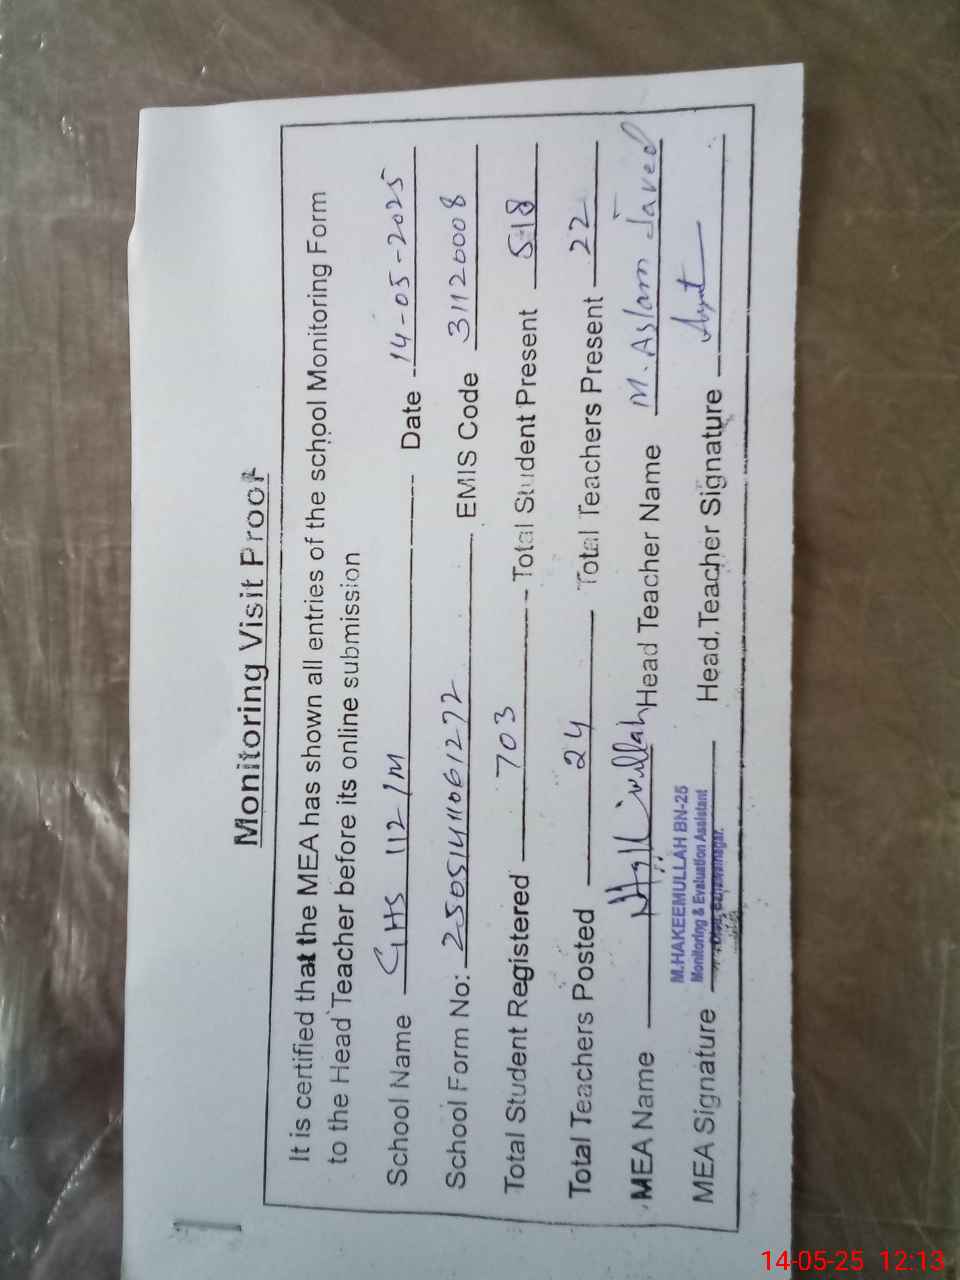 Monitoring Visit Proof
It is certified that the MEA has shown all entries of the school Monitoring Form
to the Head Teacher before its online submission
School Name GHS 112/M Date 14-05-2025
School Form No: 25051411061272 EMIS Code 31120008
Total Student Registered 703 Total Student Present 518
Total Teachers Posted 24 Total Teachers Present 22
MEA Name Head Teacher Name M. Aslam Javed
M.HAKEEMULLAH BN-25
Monitoring & Evaluation Assistant
MEA Signature Head Teacher Signature
14-05-25 12:13